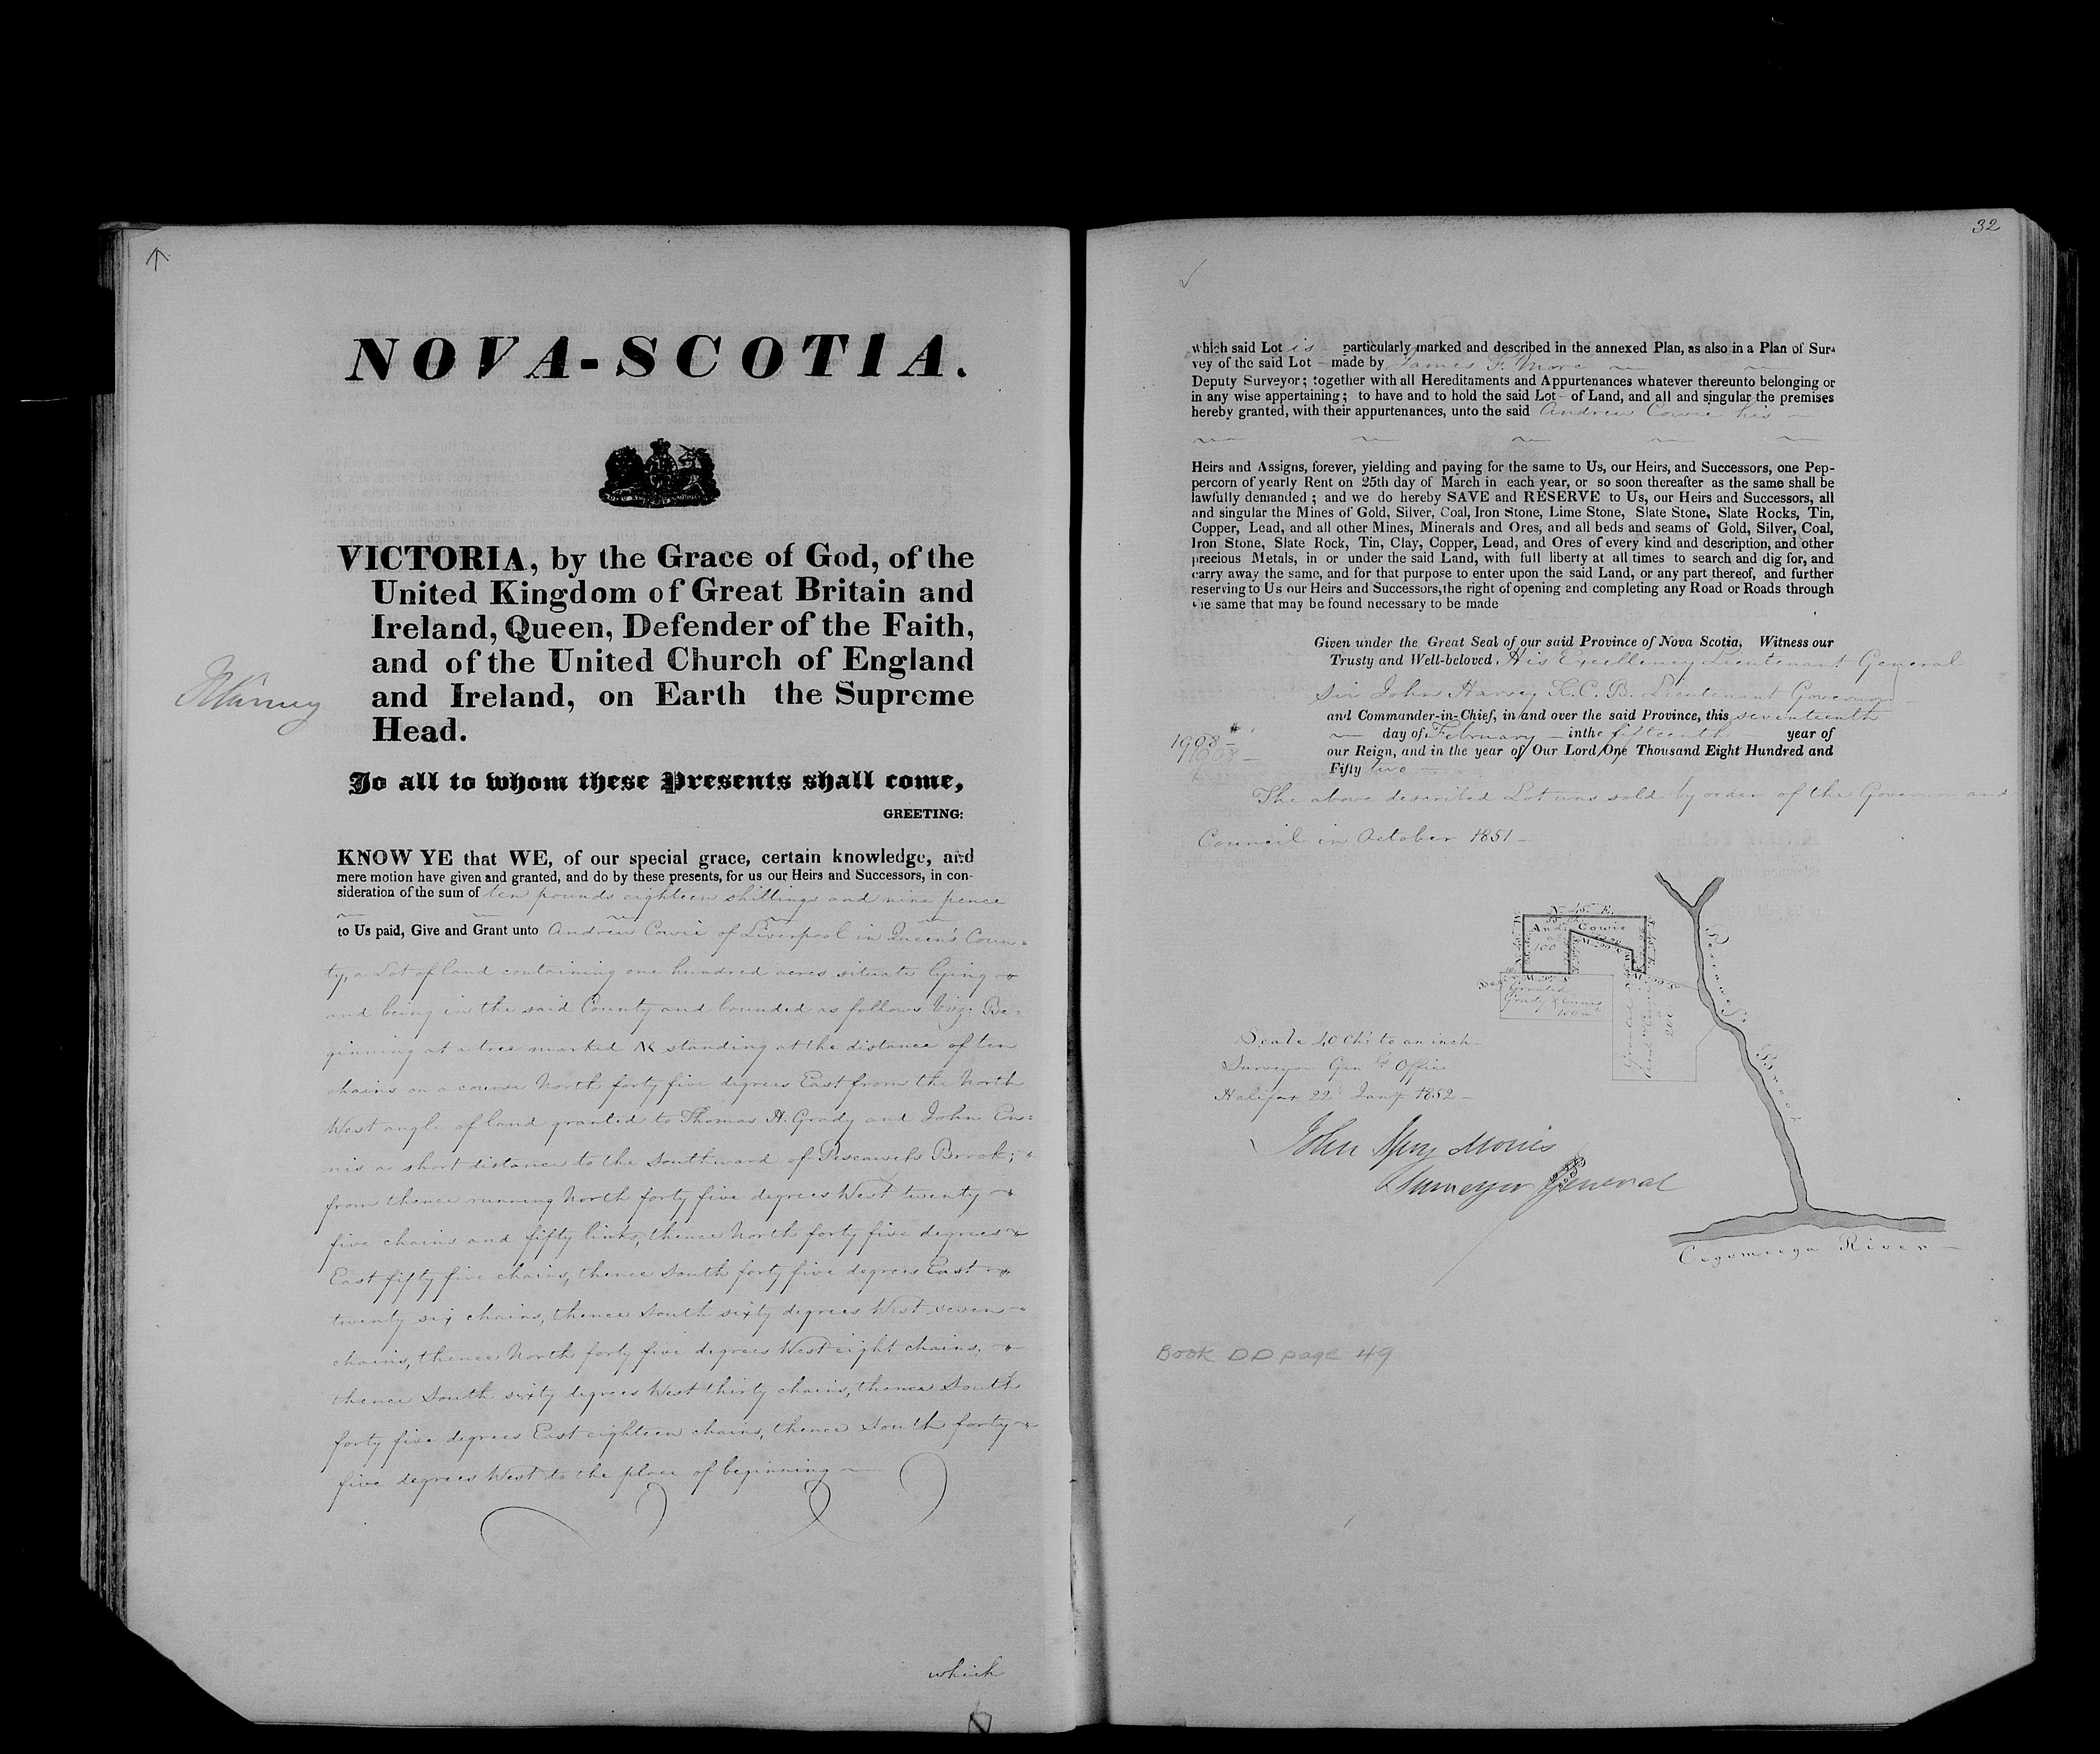 NOVA-SCOTIA.
VICTORIA, by the Grace of God, of the
United Kingdom of Great Britain and
Ireland, Queen, Defender of the Faith,
and of the United Church of England
and Ireland, on Earth the Supreme
Head.
To all to whom these Presents shall come,
GREETING:
KNOW YE that WE, of our special grace, certain knowledge, and
mere motion have given and granted, and do by these presents, for us our Heirs and Successors, in con-
sideration of the sum of ten pounds eighteen shillings and nine pence
to Us paid, Give and Grant unto Andrew Cowie of Liverpool in Queen's Coun=
ty, a Lot of land containing one hundred acres situate lying
and being in the said County and bounded as follows Viz. Be=
ginning at a tree marked standing at the distance of ten
chains on a course North forty five degrees East from the North
West angle of land granted to Thomas H. Grady and John En=
nis a short distance to the Southward of Pescawess Brook;
from thence running North forty five degrees West twenty
five chains and fifty links, thence North forty five degrees
East fifty five chains, thence South forty five degrees East
twenty six chains, thence South sixty degrees West seven
chains, thence North forty five degrees West eight chains,
thence South sixty degrees West thirty chains, thence South
forty five degrees East eighteen chains, thence South forty
five degrees West to the place of beginning
which
32
which said Lot is particularly marked and described in the annexed Plan, as also in a Plan of Sur-
vey of the said Lot made by James F. More
Deputy Surveyor; together with all Hereditaments and Appurtenances whatever thereunto belonging or
in any wise appertaining; to have and to hold the said Lot of Land, and all and singular the premises
hereby granted, with their appurtenances, unto the said Andrew Cowie his
Heirs and Assigns, forever, yielding and paying for the same to Us, our Heirs, and Successors, one Pep-
percorn of yearly Rent on 25th day of March in each year, or so soon thereafter as the same shall be
lawfully demanded; and we do hereby SAVE and RESERVE to Us, our Heirs and Successors, all
and singular the Mines of Gold, Silver, Coal, Iron Stone, Lime Stone, Slate Stone, Slate Rocks, Tin,
Copper, Lead, and all other Mines, Minerals and Ores, and all beds and seams of Gold, Silver, Coal,
Iron Stone, Slate Rock, Tin, Clay, Copper, Lead, and Ores of every kind and description, and other
precious Metals, in or under the said Land, with full liberty at all times to search and dig for, and
carry away the same, and for that purpose to enter upon the said Land, or any part thereof, and further
reserving to Us our Heirs and Successors, the right of opening and completing any Road or Roads through
the same that may be found necessary to be made
Given under the Great Seal of our said Province of Nova Scotia, Witness our
Trusty and Well-beloved, His Excellency Lieutenant General
Sir John Harvey K.C.B. Lieutenant Governor
and Commander-in-Chief, in and over the said Province, this seventeenth
day of February in the fifteenth year of
our Reign, and in the year of Our Lord One Thousand Eight Hundred and
Fifty two
1908
1908
The above described Lot was sold by order of the Governor and
Council in October 1851
N. 45° E.
And. Cowie
100
Granted
Grady & Ennis
Scale 40 Chs. to an inch
Surveyor Genl's Office
Halifax 22d Jany. 1852
John Spry Morris
Surveyor General
Cegomeega River
Book DD page 49